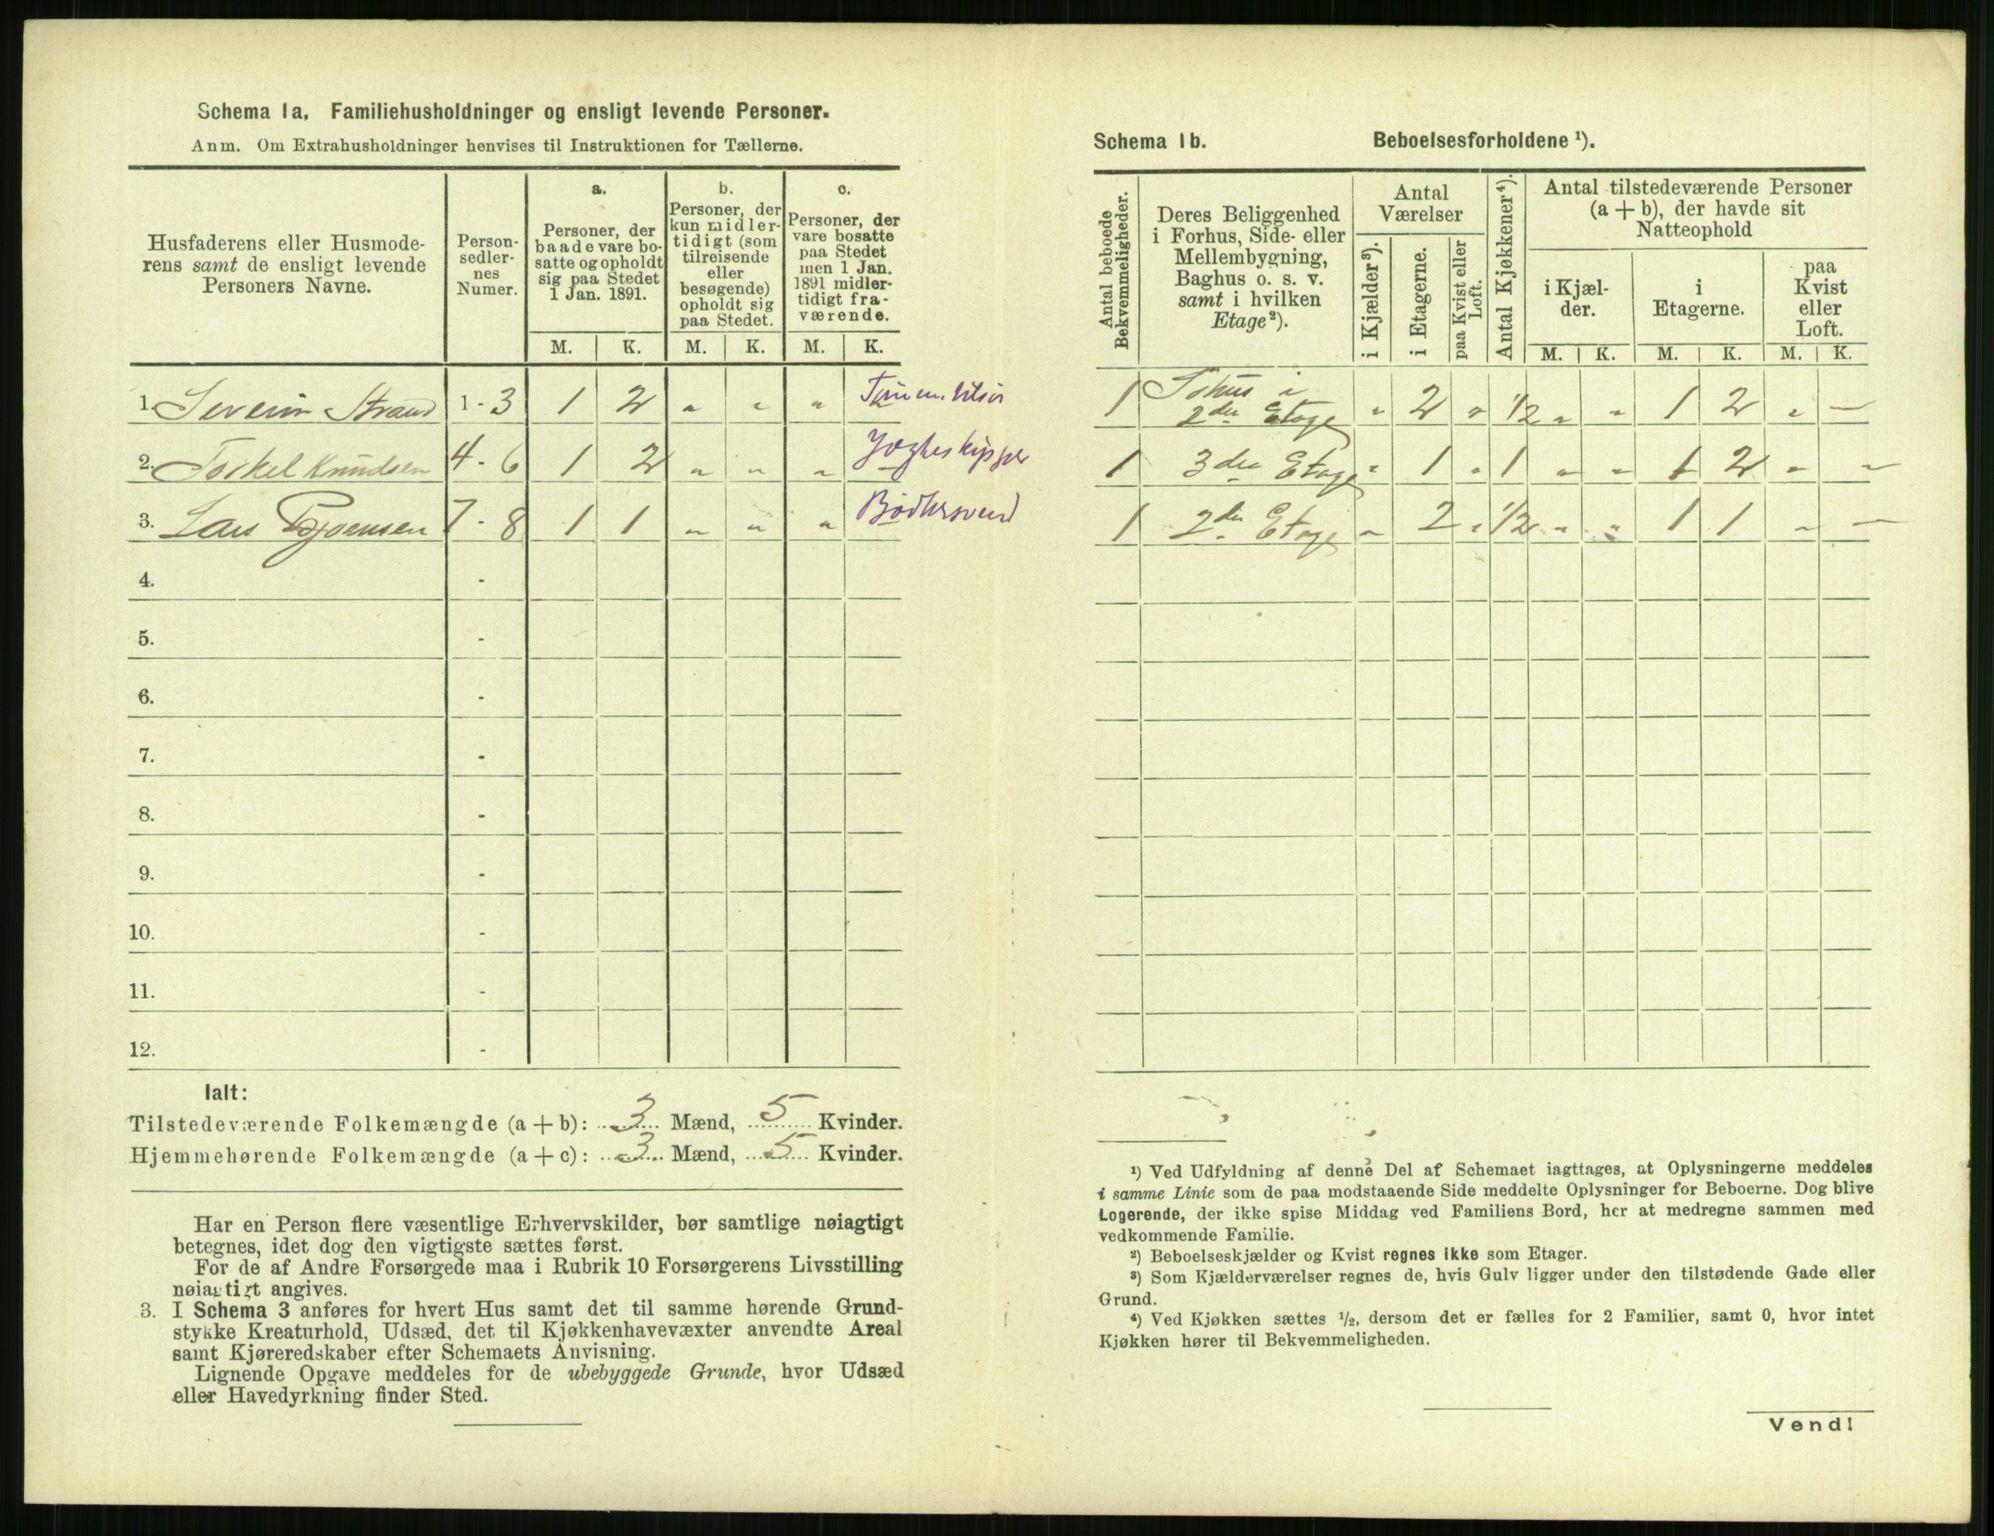 Schema 1a. Familiehusholdninger og ensligt levende Personer.
Anm. Om Extrahusholdninger henvises til Instruktionen for Tællerne.
Husfaderens eller Husmode-
rens samt de ensligt levende
Personers Navne.
Person-
sedler-
nes
Numer.
a.
Personer, der
baade vare bo-
satte og opholdt
sig paa Stedet
1 Jan. 1891.
b.
Personer, der
kun midler-
tidigt (som
tilreisende
eller
besøgende)
opholdt sig
paa Stedet.
c.
Personer, der
vare bosatte
paa Stedet
men 1 Jan.
1891 midler-
tidigt fra-
værende.
M. K. M. K. M. K.
1. Severin Strand 1 - 3 1 2 " " "
2. Torkel Knudsen 4 - 6 1 2 " " " Jagteskipper
3. Lars 7 - 8 1 1 " " " Bødkersvend
4. -
5. -
6. -
7. -
8. -
9. -
10. -
11. -
12. -
Ialt:
Tilstedeværende Folkemængde (a + b): 3 Mænd, 5 Kvinder.
Hjemmehørende Folkemængde (a + c): 3 Mænd, 5 Kvinder.
Har en Person flere væsentlige Erhvervskilder, bør samtlige nøiagtigt
betegnes, idet dog den vigtigste sættes først.
For de af Andre Forsørgede maa i Rubrik 10 Forsørgerens Livsstilling
nøiagtigt angives.
3. I Schema 3 anføres for hvert Hus samt det til samme hørende Grund-
stykke Kreaturhold, Udsæd, det til Kjøkkenhavevæxter anvendte Areal
samt Kjøreredskaber efter Schemaets Anvisning.
Lignende Opgave meddeles for de ubebyggede Grunde, hvor Udsæd
eller Havedyrkning finder Sted.
Schema 1b. Beboelsesforholdene ¹).
Antal beboede
Bekvemmeligheder.
Deres Beliggenhed
i Forhus, Side- eller
Mellembygning,
Baghus o. s. v.
samt i hvilken
Etage²).
Antal
Værelser
i Kjælder³).
i Etagerne.
paa Kvist eller
Loft.
Antal Kjøkkener⁴).
Antal tilstedeværende Personer
(a + b), der havde sit
Natteophold
i Kjæl-
der.
i
Etagerne.
paa
Kvist
eller
Loft.
M. K. M. K. M. K.
1 i
2den Etage " 2 " 1/2 " " 1 2 " —
1 3die Etage " 1 " 1 " " 1 2 " "
1 2den Etage " 2 " 1/2 " " 1 1 " —
¹) Ved Udfyldning af denne Del af Schemaet iagttages, at Oplysningerne meddeles
i samme Linie som de paa modstaaende Side meddelte Oplysninger for Beboerne. Dog blive
Logerende, der ikke spise Middag ved Familiens Bord, her at medregne sammen med
vedkommende Familie.
²) Beboelseskjælder og Kvist regnes ikke som Etager.
³) Som Kjælderværelser regnes de, hvis Gulv ligger under den tilstødende Gade eller
Grund.
⁴) Ved Kjøkken sættes ½, dersom det er fælles for 2 Familier, samt 0, hvor intet
Kjøkken hører til Bekvemmeligheden.
Vend!